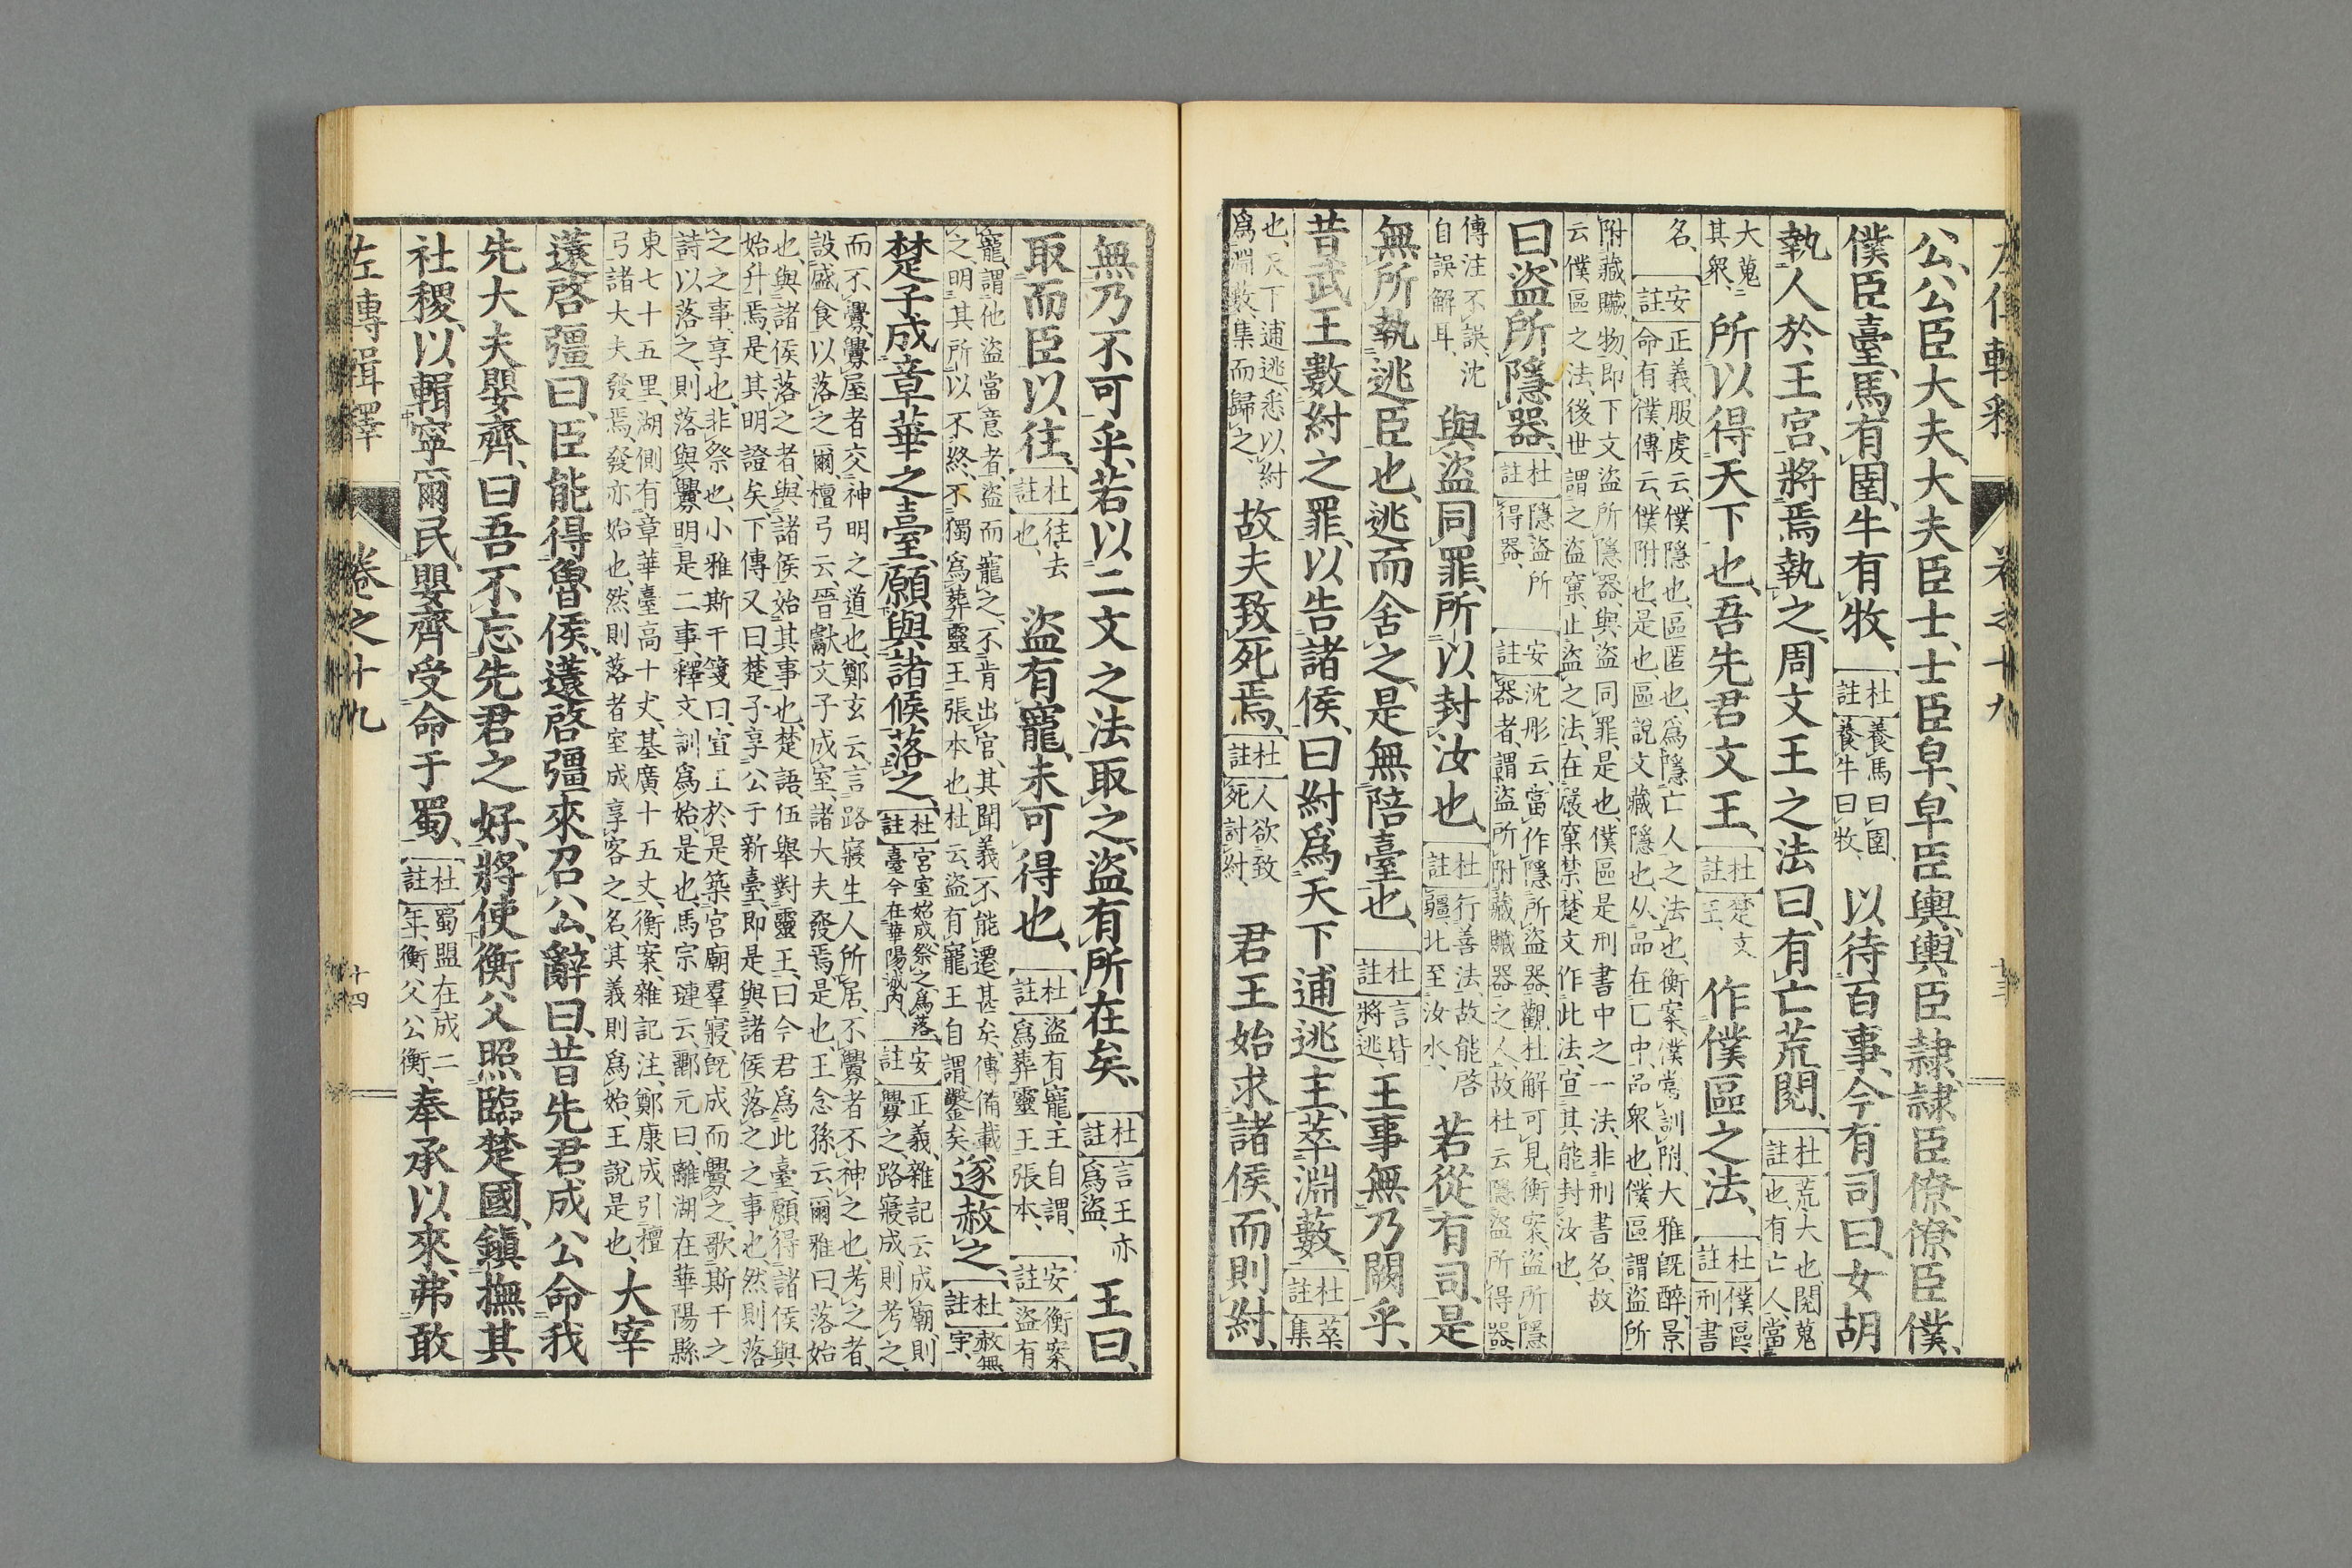 左傳輯釋 卷之十九
公、公臣大夫、大夫臣士、士臣皁、皁臣輿、輿臣隷、隷臣僚、僚臣僕、
僕臣臺、馬有圉、牛有牧、杜註養馬曰圉、養牛曰牧、以待百事、今有司曰、女胡
執人於王宮、將焉執之、周文王之法曰、有亡荒閱、杜註荒大也、閱蒐也、有亡人、當
大蒐其衆、所以得天下也、吾先君文王、杜註楚文王、作僕區之法、杜註僕區、刑書
名、安註正義、服虔云、僕隱也、區匿也、爲隱亡人之法也、衡案、僕當訓附、大雅旣醉、景
命有僕、傳云、僕附也、是也、區說文藏隱也、从品在匸中、品衆也、僕區謂盜所
附藏贓物、卽下文盜所隱器、與盜同罪、是也、僕區是刑書中之一法、非刑書名、故
云僕區之法、後世謂之盜窠、止盜之法、在嚴窠禁、楚文作此法、宜其能封汝也、
曰、盜所隱器、杜註隱盜所得器、安註沈彤云、當作隱所盜器、觀杜解可見、衡案、盜所隱
器者、謂盜所附藏贓器之人、故杜云隱盜所得器
傳注不誤、沈自誤解耳、與盜同罪、所以封汝也、杜註行善法、故能啓疆、北至汝水、若從有司、是
無所執逃臣也、逃而舍之、是無陪臺也、杜註言皆將逃、王事無乃闕乎、
昔武王數紂之罪、以告諸侯、曰、紂爲天下逋逃主、萃淵藪、杜註萃集
也、天下逋逃、悉以紂爲淵藪、集而歸之、故夫致死焉、杜註人欲致死討紂、君王始求諸侯、而則紂、
無乃不可乎、若以二文之法取之、盜有所在矣、杜註言王亦爲盜、王曰、
取而臣以往、杜註往、去也、盜有寵、未可得也、杜註盜有寵、王自謂、爲葬靈王張本、安註衡案、盜有
寵、謂他盜當意者、盜而寵之、不肯出官、其聞義不能遷甚矣、傳備載
之、明其所以不終、不獨爲葬靈王張本也、杜云、盜有寵王自謂、鑿矣、遂赦之、杜註赦無宇、
楚子成章華之臺、願與諸侯落之、杜註宮室始成、祭之爲落、臺今在華陽城內、安註正義、雜記云、成廟、則釁之、路寢成、則考之、
而不釁、釁屋者交神明之道也、鄭玄云、言路寢生人所居、不釁者不神之也、考之者、
設盛食以落之爾、檀弓云、晉獻文子成室、諸大夫發焉、是也、王念孫云、爾雅曰、落始
也、與諸侯落之者、與諸侯始其事也、楚語、伍舉對靈王、曰今君爲此臺、願得諸侯與
始升焉、是其明證矣、下傳又曰、楚子享公于新臺、卽是與諸侯落之之事也、然則落
之之事、享也、非祭也、小雅斯干箋曰、宣王於是築宮廟羣寢、旣成而釁之、歌斯干之
詩以落之、則落與釁明是二事、釋文訓爲始、是也、馬宗璉云、酈元曰、離湖在華陽縣
東七十五里、湖側有章華臺、高十丈、基廣十五丈、衡案、雜記注、鄭康成引檀
弓諸大夫發焉、發亦始也、然則落者室成享客之名、其義則爲始、王說是也、大宰
薳啓疆曰、臣能得魯侯、薳啓疆來召公、辭曰、昔先君成公命我
先大夫嬰齊、曰吾不忘先君之好、將使衡父照臨楚國、鎭撫其
社稷、以輯寧爾民、嬰齊受命于蜀、杜註蜀盟在成二年、衡父公衡、奉承以來、弗敢
左傳輯釋 卷之十九 十四